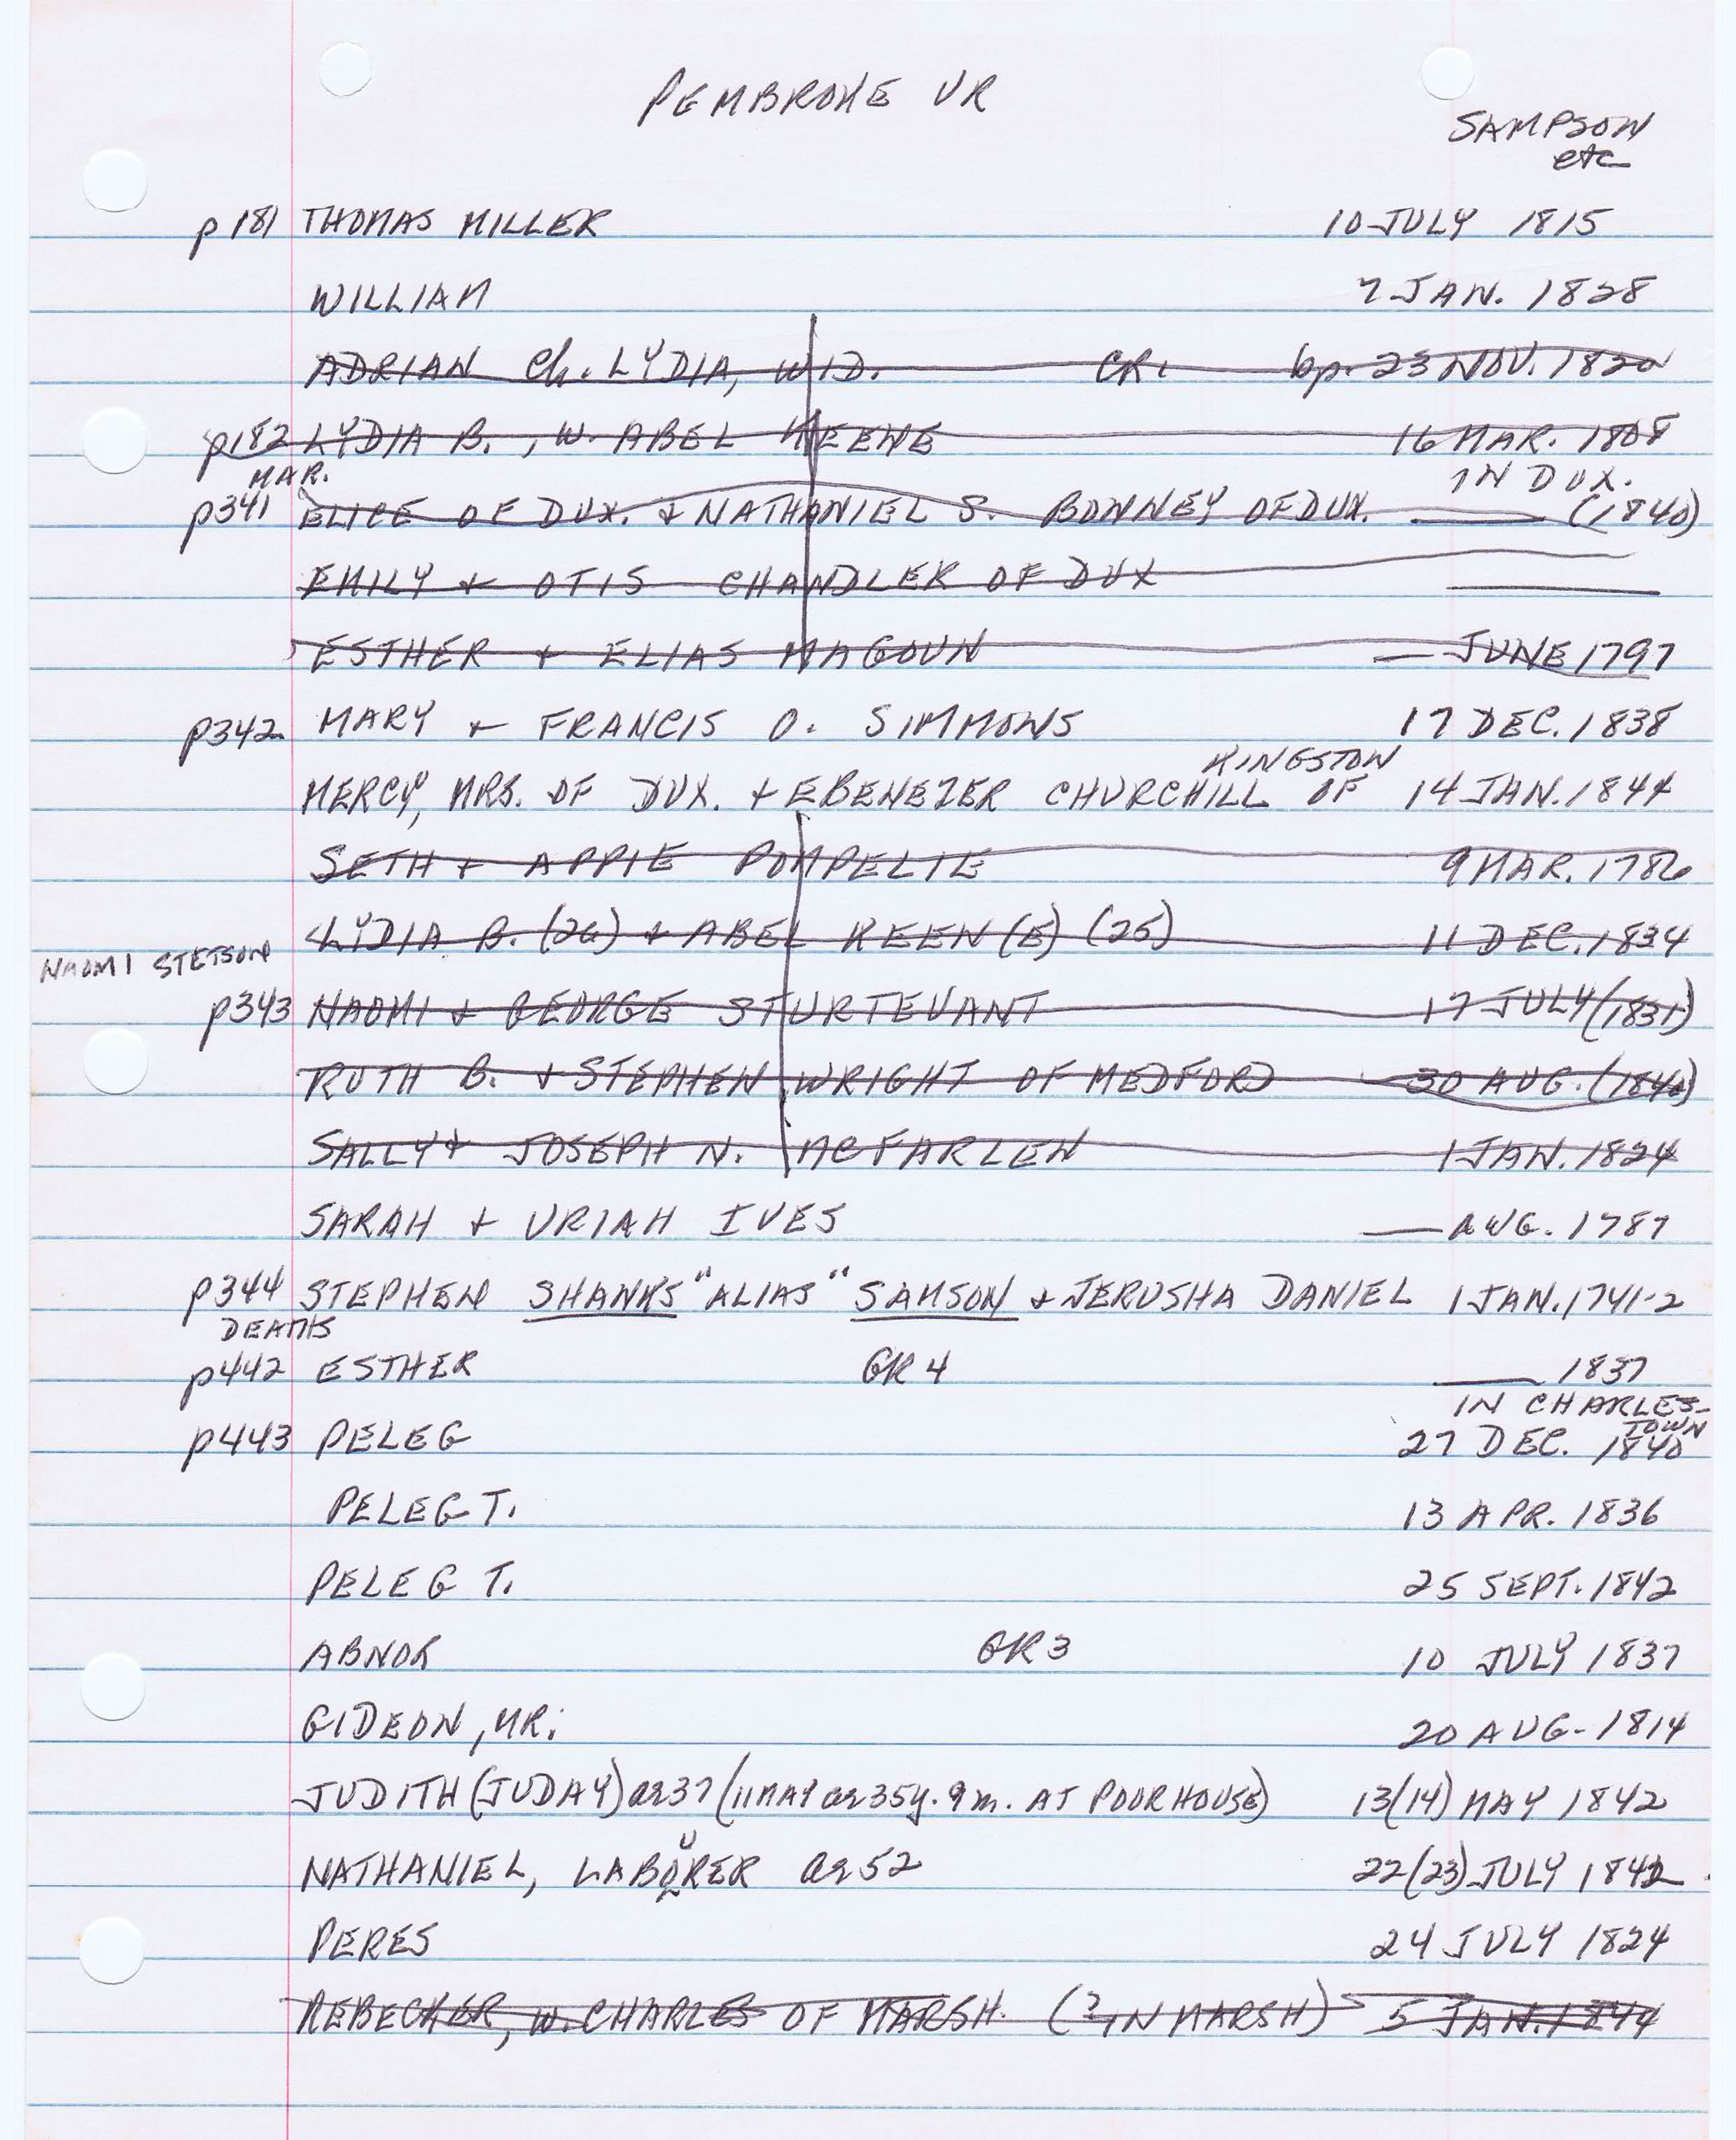 PEMBROKE VR
SAMPSON
etc
p181 THOMAS MILLER 10 JULY 1815
WILLIAM 7 JAN. 1828
ADRIAN Ch. LYDIA, WID. CR1 bp. 23 NOV. 1820
p182 LYDIA B., W. ABEL KEENE 16 MAR. 1808
MAR. IN DUX.
p341 ELICE OF DUX. & NATHANIEL S. BONNEY OF DUX. —— (1840)
EMILY & OTIS CHANDLER OF DUX ——
ESTHER & ELIAS MAGOUN — JUNE 1797
p342 MARY & FRANCIS O. SIMMONS 17 DEC. 1838
KINGSTON
MERCY, MRS. OF DUX. & EBENEZER CHURCHILL OF 14 JAN. 1844
SETH & APPIE POMPELIE 9 MAR. 1786
LYDIA B. (26) & ABEL KEEN (E) (25) 11 DEC. 1834
NAOMI STETSON
p343 NAOMI & GEORGE STURTEVANT 17 JULY (1831)
RUTH B. & STEPHEN WRIGHT OF MEDFORD 30 AUG. (1840)
SALLY & JOSEPH N. MCFARLEN 1 JAN. 1824
SARAH & URIAH IVES — AUG. 1787
p344 STEPHEN SHANKS "ALIAS" SAMSON & JERUSHA DANIEL 1 JAN. 1741-2
DEATHS
p442 ESTHER GR 4 —— 1837
IN CHARLES-
TOWN
p443 PELEG 27 DEC. 1840
PELEG T. 13 APR. 1836
PELEG T. 25 SEPT. 1842
ABNOR GR 3 10 JULY 1837
GIDEON, MR. 20 AUG. 1814
JUDITH (JUDAY) ae 37 (11 MAY ae 35y. 9m. AT POORHOUSE) 13(14) MAY 1842
U
NATHANIEL, LABORER ae 52 22(23) JULY 1842
PERES 24 JULY 1824
REBECHER, W. CHARLES OF MARSH. (? IN MARSH) 5 JAN. 1844